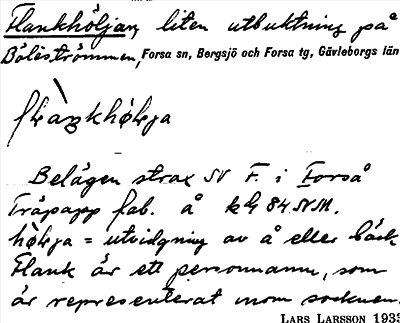 Flankhöljan, liten utbuktning på
Böleströmmen, Forsa sn, Bergsjö och Forsa tg, Gävleborgs län
flànkhølja
Belägen strax SV F. i Forså
Träpapp fab. å kbl 84 SV III.
hølja = utvidgning av å eller bäck
Flank är ett personnamn, som
är representerat inom socknen.
LARS LARSSON 1933